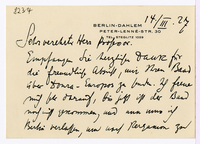 3237
BERLIN-DAHLEM
PETER-LENNE-STR. 30
TEL. STEGLITZ
14/III. 27
Sehr verehrter Herr Professor.
Empfangen Sie herzlichen Dank für
die freundliche Absicht, mir Ihren Band
über Donau-Europas zu senden. Ich freue
mich sehr darauf, da jetzt ist der Band
nicht gekommen, und nun muss ich
Berlin verlassen, um nach